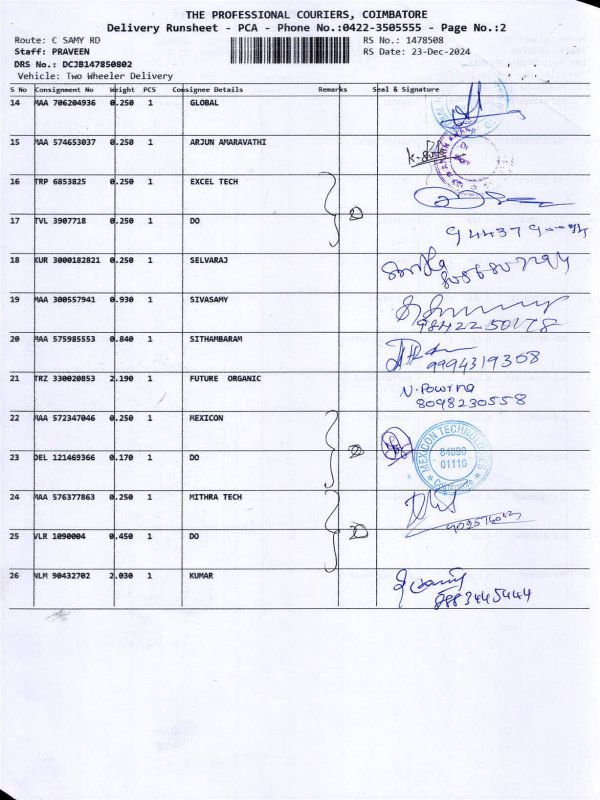 THE PROFESSIONAL COURIERS, COIMBATORE
Delivery Runsheet - PCA - Phone No.:0422-3505555 - Page No.:2
Route: C SAMY RD RS No.: 1478508
Staff: PRAVEEN RS Date: 23-Dec-2024
DRS No.: DCJB147850802
Vehicle: Two Wheeler Delivery
S No Consignment No Weight PCS Consignee Details Remarks Seal & Signature
14 MAA 706204936 0.250 1 GLOBAL
15 MAA 574653037 0.250 1 ARJUN AMARAVATHI
16 TRP 6853825 0.250 1 EXCEL TECH
17 TVL 3907718 0.250 1 DO
18 KUR 3000182821 0.250 1 SELVARAJ
19 MAA 300557941 0.930 1 SIVASAMY
20 MAA 575985553 0.840 1 SITHAMBARAM 9994319308
21 TRZ 330020853 2.190 1 FUTURE ORGANIC N. Powrna
8098230558
22 MAA 572347046 0.250 1 MEXICON
MEXICON TECHNOLOGIES
94890
01110
Coimbatore
23 DEL 121469366 0.170 1 DO
24 MAA 576377863 0.250 1 MITHRA TECH
25 VLR 1090004 0.450 1 DO
26 NLM 90432702 2.030 1 KUMAR
8883445444